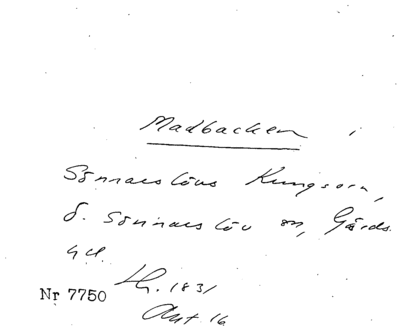 Madbacken i
Sönnarslövs Kungsorn,
d. Sönnarslöv sn, Gärds
hd.
Lh. 1831
Nr 7750
Akt 16